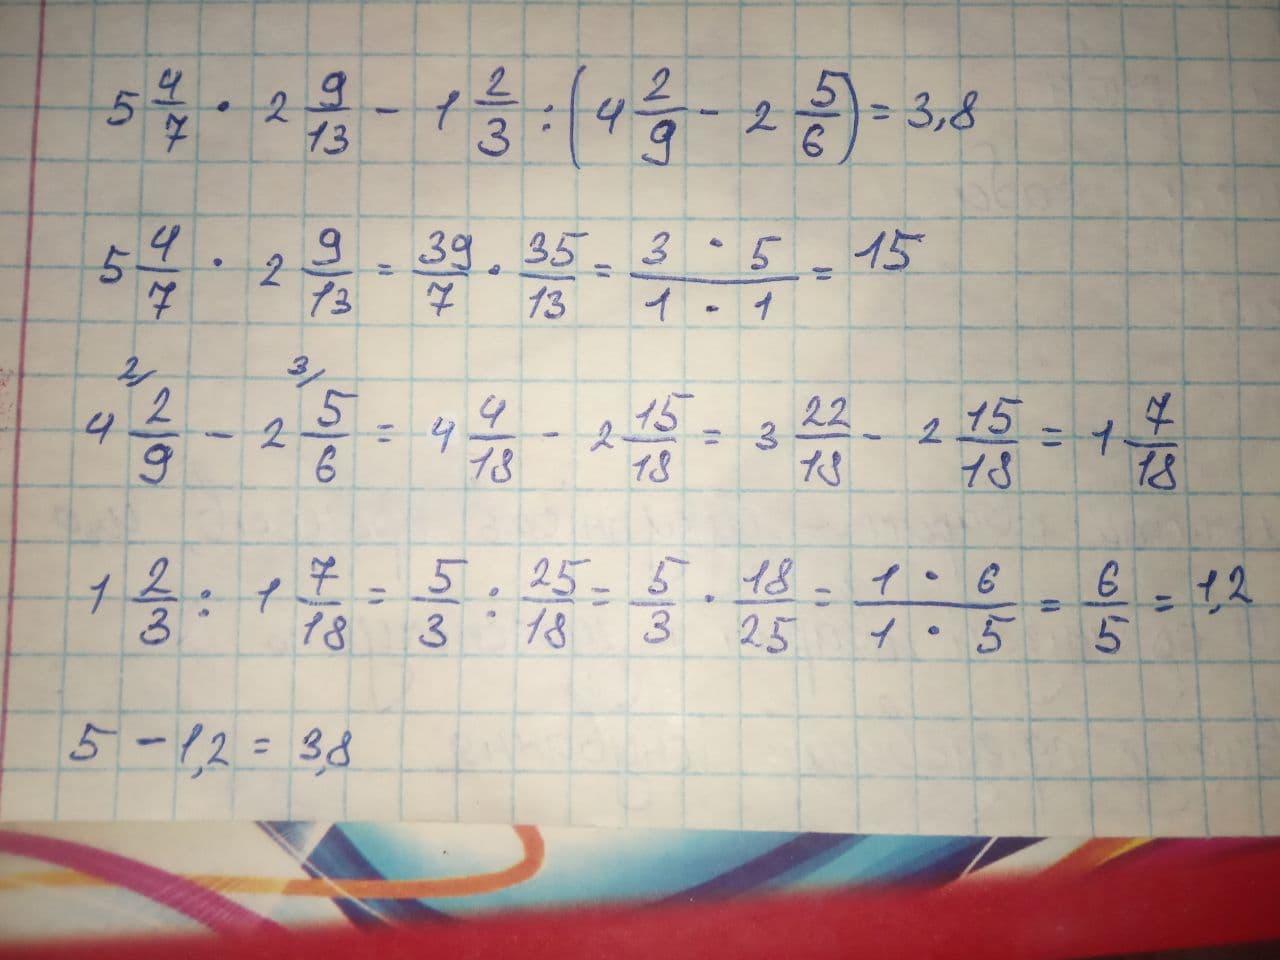 5 4/7 · 2 9/13 - 1 2/3 : (4 2/9 - 2 5/6) = 3,8
5 4/7 · 2 9/13 = 39/7 · 35/13 = 3 · 5 / 1 · 1 = 15
4 2/9 2/ - 2 5/6 3/ = 4 4/18 - 2 15/18 = 3 22/18 - 2 15/18 = 1 7/18
1 2/3 : 1 7/18 = 5/3 : 25/18 = 5/3 · 18/25 = 1 · 6 / 1 · 5 = 6/5 = 1,2
5 - 1,2 = 3,8